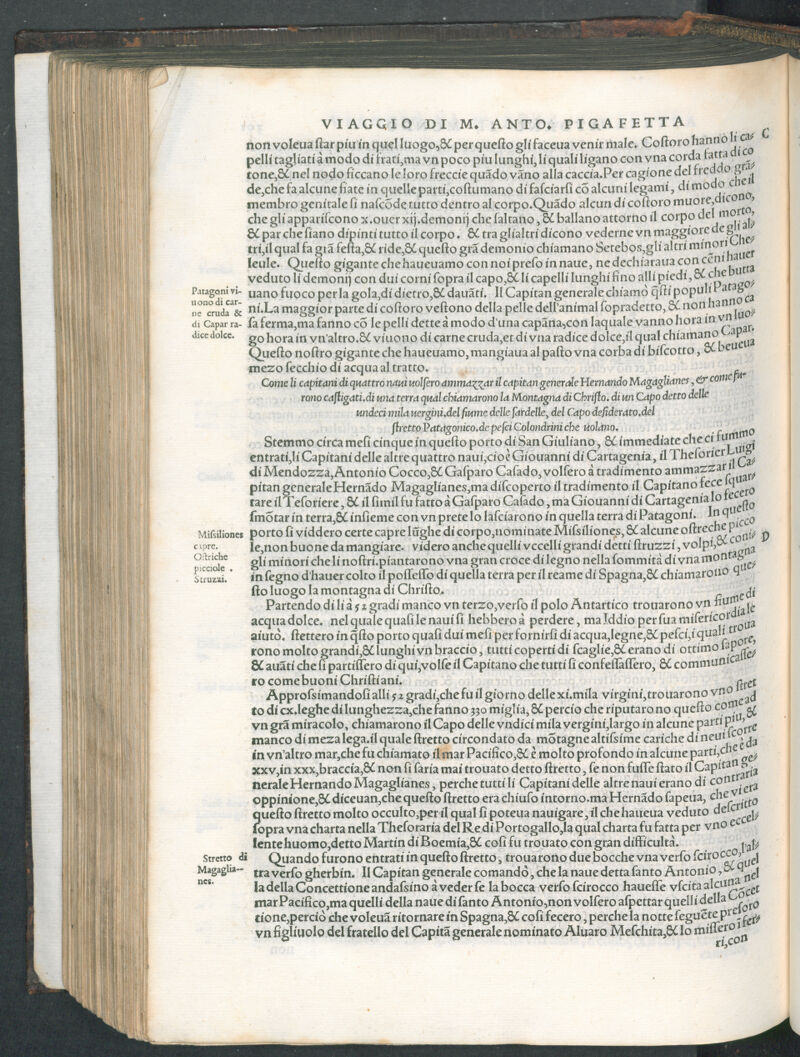 VIAGGIO DI M. ANTO. PIGAFETTA
non voleua ſtar piu in quel luogo,& per queſto gli faceua venir male. Coſtoro hanno li ca⸗
C
pelli tagliati à modo di frati,ma vn poco piu lunghi, li quali ligano con vna corda fatta di co
tone,& nel nodo ficcano le loro freccie quãdo vãno alla caccia.Per cagione del freddo grã⸗
de,che fa alcune fiate in quelle parti,coſtumano di faſciarſi cõ alcuni legami, di modo che il
membro genitale ſi naſcõde tutto dentro al corpo.Quãdo alcun di coſtoro muore,dicono,
che gli appariſcono x.ouer xij.demonij che ſaltano, & ballano attorno il corpo del morto,
& par che ſiano dipinti tutto il corpo. & tra glialtri dicono vederne vn maggiore de gli al⸗
tri,il qual fa grã feſta,& ride,& queſto grã demonio chiamano Setebos,gli altri minori Che⸗
leule. Queſto gigante che haueuamo con noi preſo in naue, ne dechiaraua con cẽni hauer
veduto li demonij con dui corni ſopra il capo,& li capelli lunghi fino alli piedi, & che butta
Patagoni vi-
uono di car-
ne cruda &
di Capar ra-
dice dolce.
uano fuoco per la gola,di dietro,& dauãti. Il Capitan generale chiamò q̃ſti populi Patago⸗
ni.La maggior parte di coſtoro veſtono della pelle dell'animal ſopradetto, & non hanno ca
ſa ferma,ma fanno cõ le pelli dette à modo d'vna capãna,con laquale vanno hora in vn luo⸗
go hora in vn'altro.& viuono di carne cruda,et di vna radice dolce,il qual chiamano Capar.
Queſto noſtro gigante che haueuamo, mangiaua al paſto vna corba di biſcotto, & beueua
mezo ſecchio di acqua al tratto.
Come li capitani di quattro naui uolſero ammazzar il capitan generale Hernando Magaglianes, & come fu-
rono caſtigati.di una terra qual chiamarono la Montagna di Chriſto. di un Capo detto delle
undeci mila uergini.del fiume delle ſardelle, del Capo deſiderato.del
ſtretto Patagonico.de peſci Colondrini che uolano.
Stemmo circa meſi cinque in queſto porto di San Giuliano, & immediate che ci fummo
entrati,li Capitani delle altre quattro naui,cioè Giouanni di Cartagenia, il Theſorier Luigi
di Mendozza,Antonio Cocco,& Gaſparo Caſado, volſero à tradimento ammazzar il Ca⸗
pitan generale Hernãdo Magaglianes,ma diſcoperto il tradimento il Capitano fece ſquar⸗
tare il Teſoriere, & il ſimil fu fatto à Gaſparo Caſado, ma Giouanni di Cartagenia lo fecero
ſmõtar in terra,& inſieme con vn prete lo laſciarono in quella terra di Patagoni. In queſto
Miſsiliones
capre.
Oſtriche
picciole .
Struzzi.
porto ſi viddero certe capre lũghe di corpo,nominate Miſsiliones, & alcune oſtreche picco
le,non buone da mangiare. videro anche quelli vccelli grandi detti ſtruzzi, volpi,& coni⸗
D
gli minori che li noſtri.piantarono vna gran croce di legno nella ſommità di vna montagna
in ſegno d'hauer colto il poſſeſſo di quella terra per il reame di Spagna,& chiamarono que⸗
ſto luogo la montagna di Chriſto.
Partendo di li à 52 gradi manco vn terzo,verſo il polo Antartico trouarono vn fiume di
acqua dolce. nel quale quaſi le naui ſi hebbero à perdere, ma Iddio per ſua miſericordia le
aiutò. ſtettero in q̃ſto porto quaſi dui meſi per fornirſi di acqua,legne,& peſci,i quali troua
rono molto grandi,& lunghi vn braccio, tutti coperti di ſcaglie,& erano di ottimo ſapore,
& auãti che ſi partiſſero di qui,volſe il Capitano che tutti ſi confeſſaſſero, & communicaſſe⸗
ro come buoni Chriſtiani.
Approſsimandoſi alli 52 gradi,che fu il giorno delle xi.mila virgini,trouarono vno ſtret
to di cx.leghe di lunghezza,che fanno 330 miglia, & percio che riputarono queſto come ad
vn grã miracolo, chiamarono il Capo delle vndici mila vergini,largo in alcune parti piu, &
manco di meza lega.il quale ſtretto circondato da mõtagne altiſsime cariche di neui ſcorre
in vn'altro mar,che fu chiamato il mar Pacifico,& è molto profondo in alcune parti,che è da
xxv,in xxx,braccia,& non ſi ſaria mai trouato detto ſtretto, ſe non fuſſe ſtato il Capitan ge⸗
nerale Hernando Magaglianes, perche tutti li Capitani delle altre naui erano di contraria
oppinione,& diceuan,che queſto ſtretto era chiuſo intorno.ma Hernãdo ſapeua, che vi era
queſto ſtretto molto occulto,per il qual ſi poteua nauigare, il che haueua veduto deſcritto
ſopra vna charta nella Theſoraria del Re di Portogallo,la qual charta fu fatta per vno eccel⸗
lente huomo,detto Martin di Boemia,& coſi fu trouato con gran difficultà.
Stretto di
Magaglia-
nes.
Quando furono entrati in queſto ſtretto, trouarono due bocche vna verſo ſcirocco,l'al⸗
tra verſo gherbin. Il Capitan generale comandò, che la naue detta ſanto Antonio, & quel
la della Concettione andaſsino à veder ſe la bocca verſo ſcirocco haueſſe vſcita alcuna nel
mar Pacifico,ma quelli della naue di ſanto Antonio,non volſero aſpettar quelli della Cõcet
tione,perciò che voleuã ritornare in Spagna,& coſi fecero, perche la notte ſeguẽte preſoro
vn figliuolo del fratello del Capitã generale nominato Aluaro Meſchita,& lo miſſero ĩ fer⸗
ri,con